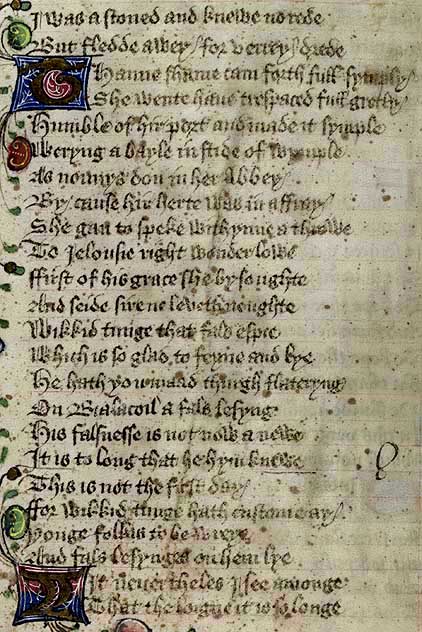 I was a stoned and knewe no rede
But fledde awey for verrey drede
Thanne shame cam forth full symply
She wente haue trespaced full gretly
Humble of hir port and made it symple
Weryng a vayle in stide of wymple
As nonnys don in her abbey
By cause hir herte was in affray
She gan to speke withynne a throwe
To Ielousie right wonder lowe
ffirst of his grace she bysoughte
And seide sire ne leveth noughte
Wikkid tunge that fals espie
Which is so glad to feyne and lye
He hath you maad thurgh flateryng
On Bialacoil a fals lesyng
His falsnesse is not now a newe
It is to long that he hym knewe
This is not the first day
ffor wikkid tunge hath custome ay
Yonge folkis to bewreye
And fals lesynges on hem lye
Yit nevertheles I see amonge
That the loigne it is so longe